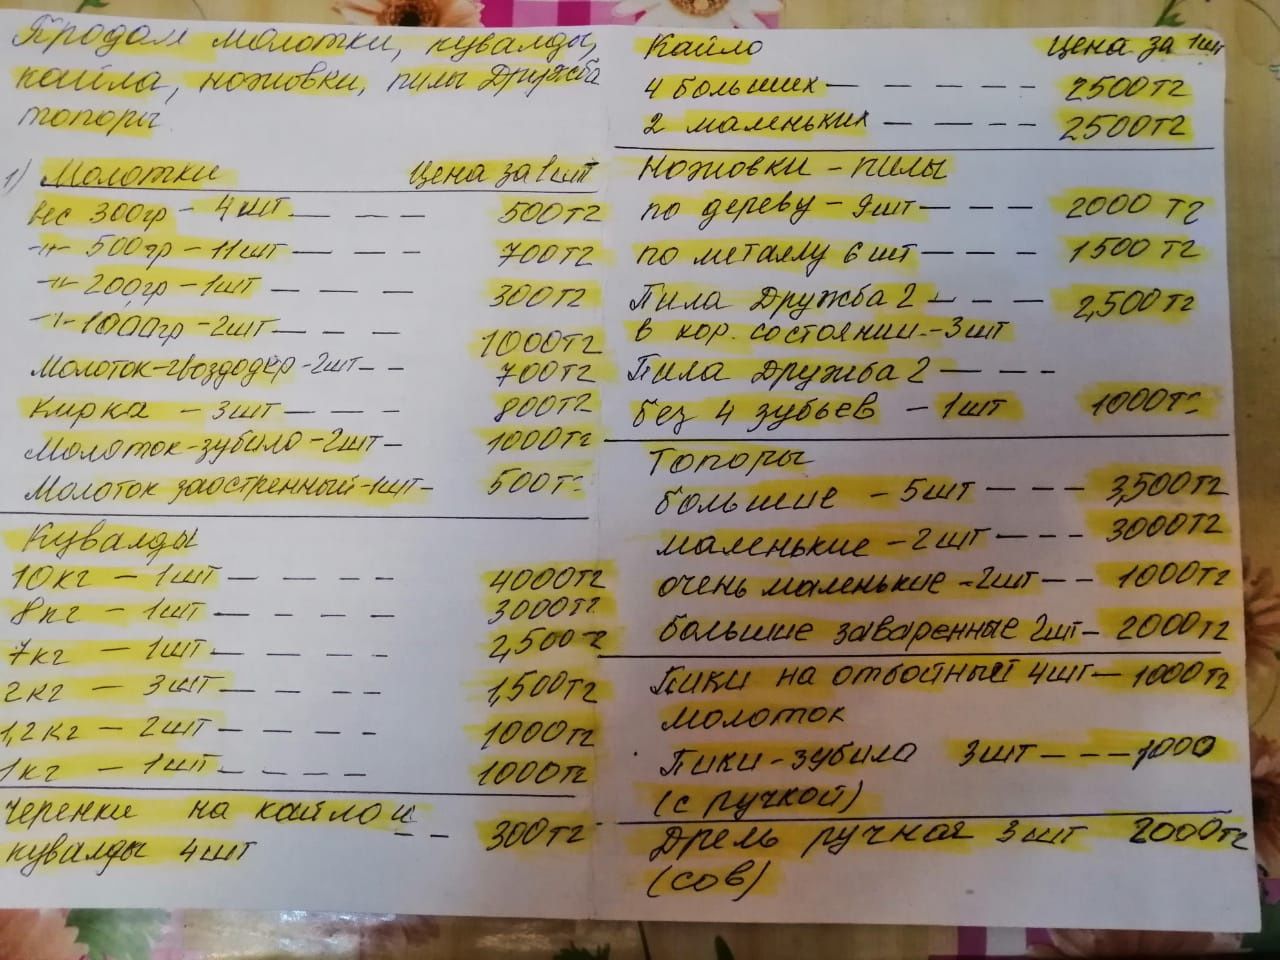 Продам молотки, кувалды,
кайла, ножовки, пилы Дружба
топоры
1) Молотки Цена за 1 шт
Вес 300гр - 4шт — — — 500тг
-"- 500гр - 11шт — — — 700тг
-"- 200гр - 1шт — — — 300тг
-"- 1000гр - 2шт — — — 1000тг
Молоток-гвоздодёр - 2шт — — 700тг
Кирка - 3шт — — — 800тг
Молоток-зубило - 2шт — 1000тг
Молоток заостренный - 1шт — 500тг
Кувалды
10кг - 1шт — — — — — 4000тг
8кг - 1шт — — — — 3000тг
7кг - 1шт — — — — 2,500тг
2кг - 3шт — — — — 1,500тг
1,2кг - 2шт — — — — 1000тг
1кг - 1шт — — — — 1000тг
Черенки на кайло и
кувалды 4шт — — 300тг
Кайло Цена за 1шт
4 больших — — — — — 2500тг
2 маленьких — — — — 2500тг
Ножовки - пилы
по дереву - 9шт — — — 2000 тг
по металлу 6 шт — — — 1500 тг
Пила Дружба 2 — — — 2,500тг
в хор. состоянии - 3шт
Пила Дружба 2 — — — —
без 4 зубьев - 1шт 1000тг
Топоры
большие - 5шт — — — 3,500тг
маленькие - 2шт — — — 3000тг
очень маленькие - 2шт — — 1000тг
большие заваренные 2шт — 2000тг
Пики на отбойный 4шт — 1000тг
молоток
Пики-зубила 3шт — — — 1000
(с ручкой)
Дрель ручная 3шт 2000тг
(сов)